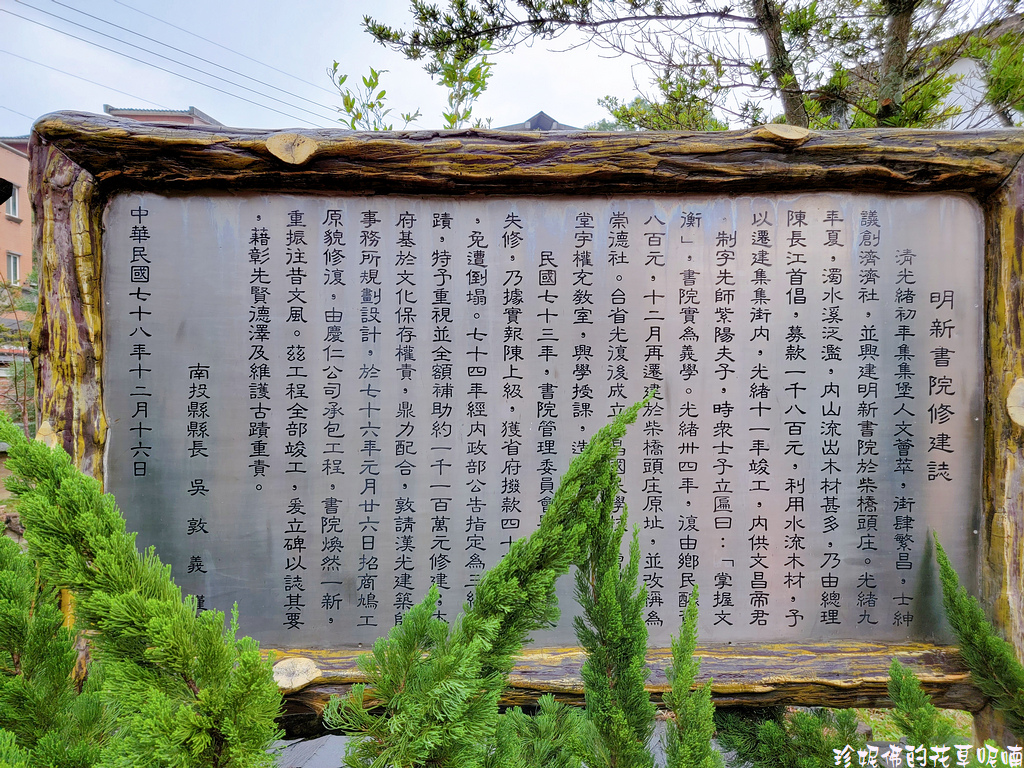 明新書院修建誌
清光緒初年集集堡人文薈萃，街肆繁昌，士紳
議創濟濟社，並興建明新書院於柴橋頭庄。光緒九
年夏，濁水溪泛濫，內山流出木材甚多，乃由總理
陳長江首倡，募款一千八百元，利用水流木材，予
以遷建集集街內，光緒十一年竣工，內供文昌帝君
、制字先師紫陽夫子，時衆士子立匾曰：「掌握文
衡」，書院實為義學。光緒卅四年，復由鄉民
八百元，十二月再遷建於柴橋頭庄原址，並改稱為
崇德社。台省光復後成立
堂宇權充教室，興學授課，
民國七十三年，書院管理委員會
失修，乃據實報陳上級，獲省府撥款四十
，免遭倒塌。七十四年經內政部公告指定為三
蹟，特予重視並全額補助約一千一百萬元修建，本
府基於文化保存權責，鼎力配合，敦請漢光建築師
事務所規劃設計，於七十六年元月廿六日招商鳩工
原貌修復，由慶仁公司承包工程，書院煥然一新，
重振往昔文風。茲工程全部竣工，爰立碑以誌其要
，藉彰先賢德澤及維護古蹟重責。
南投縣縣長 吳 敦 義 謹
中華民國七十八年十二月十六日
珍妮佛的花草呢喃